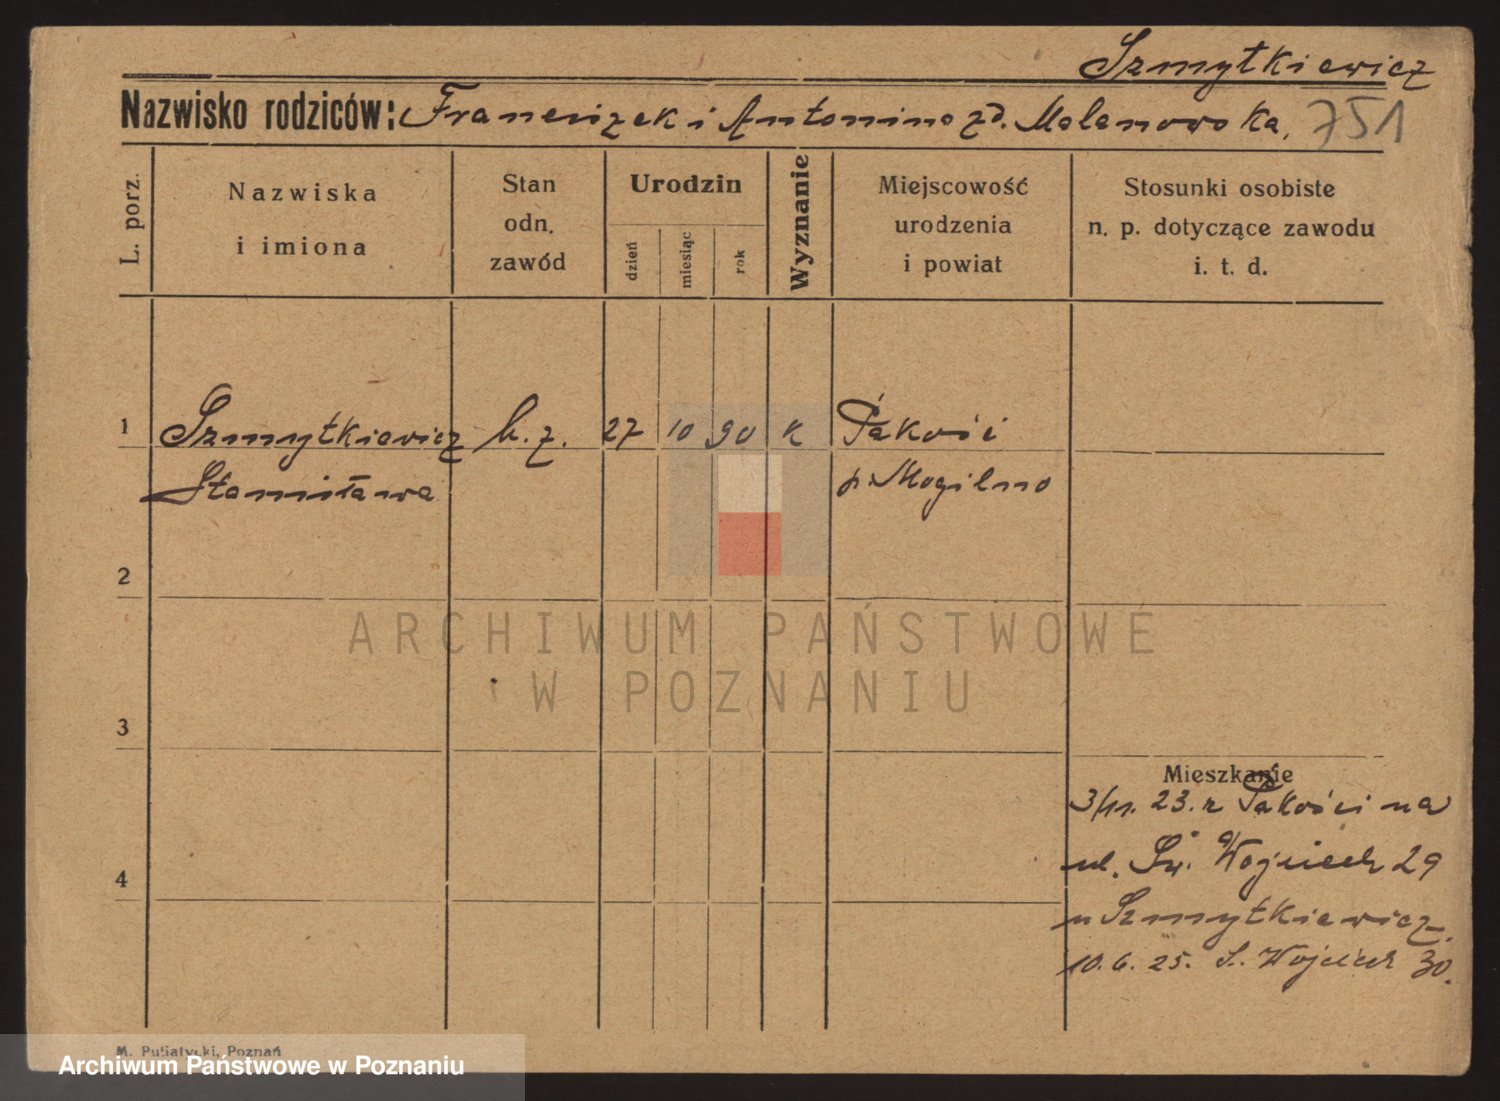 Szmytkiewicz
Nazwisko rodziców: Franciszek i Antonina zd. Malanowska. 751
L. porz.
Nazwiska
i imiona
Stan
odn.
zawód
Urodzin
dzień
miesiąc
rok
Wyznanie
Miejscowość
urodzenia
i powiat
Stosunki osobiste
n. p. dotyczące zawodu
i. t. d.
1 Szmytkiewicz b. z. 27 10 90 k Pakość
Stanisława p. Mogilno
2
ARCHIWUM PAŃSTWOWE
W POZNANIU
3
Mieszkanie
23. z Pakości na
4
ul. Św. Wojciech 29
u Szmytkiewicz.
10. 6. 25. Ś. Wojciech 30.
M. Putiatycki, Poznań
Archiwum Państwowe w Poznaniu